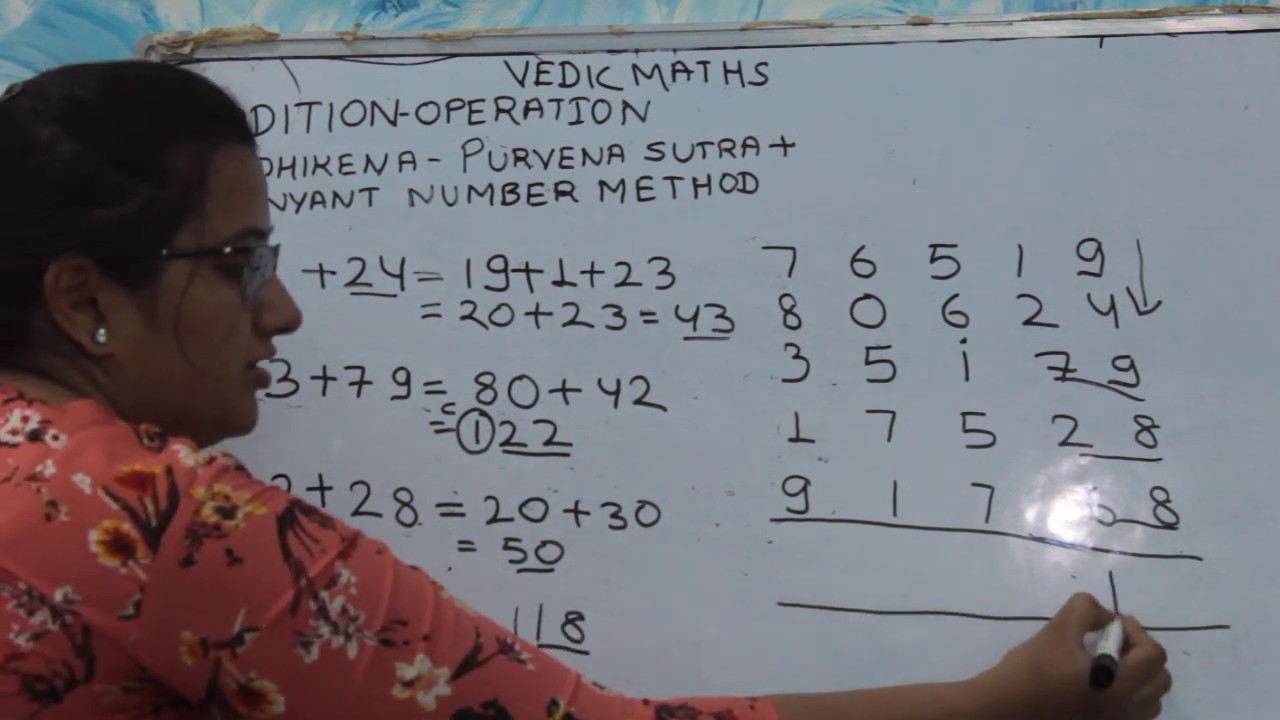 VEDIC MATHS
DITION-OPERATION
DHIKENA - PURVENA SUTRA +
NYANT NUMBER METHOD
+24 = 19+1+23
= 20+23 = 43
3+79 = 80+42
= 122
+28 = 20+30
= 50
118
7 6 5 1 9
8 0 6 2 4
3 5 1 7 9
1 7 5 2 8
9 1 7 8
1